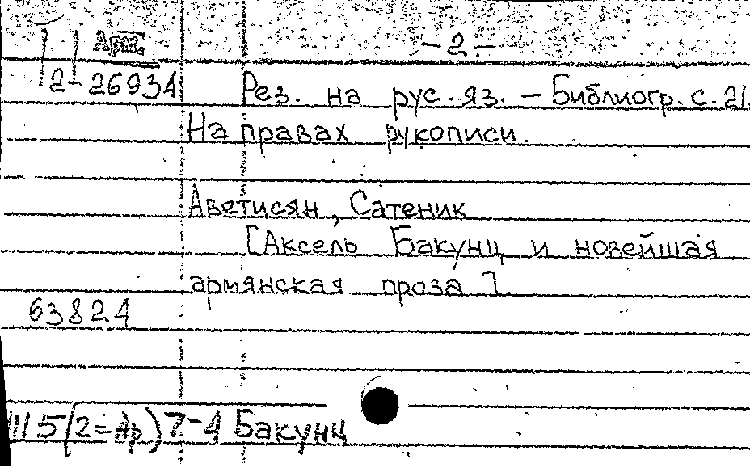 Арм. – 2 –
2-26934 Рез. на рус. яз. – Библиогр. с. 21.
На правах рукописи.
Аветисян, Сатеник
[Аксель Бакунц и новейшая
армянская проза]
63824
5(2=Ар)7-4 Бакунц